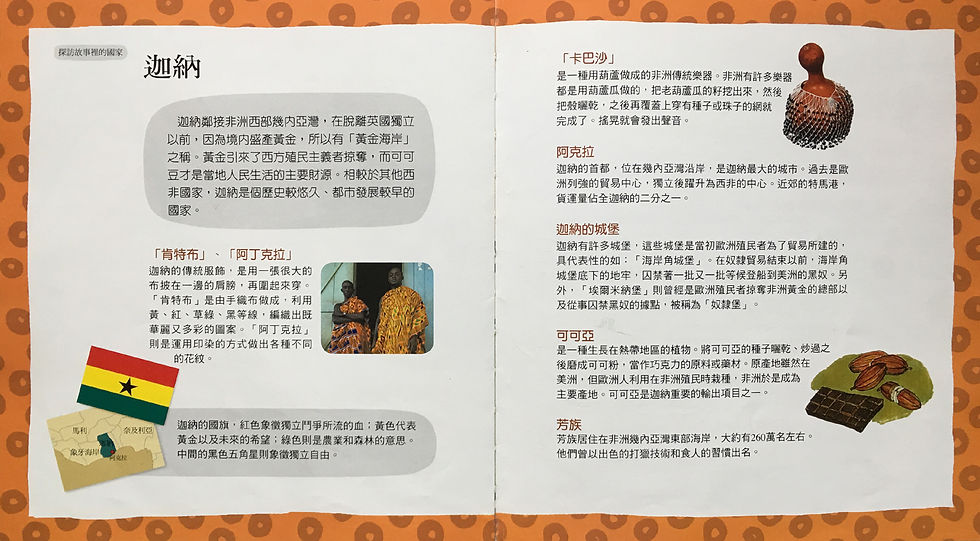 探訪故事裡的國家
迦納
迦納鄰接非洲西部幾內亞灣，在脫離英國獨立
以前，因為境內盛產黃金，所以有「黃金海岸」
之稱。黃金引來了西方殖民主義者掠奪，而可可
豆才是當地人民生活的主要財源。相較於其他西
非國家，迦納是個歷史較悠久、都市發展較早的
國家。
「肯特布」、「阿丁克拉」
迦納的傳統服飾，是用一張很大的
布披在一邊的肩膀，再圍起來穿。
「肯特布」是由手織布做成，利用
黃、紅、草綠、黑等線，編織出既
華麗又多彩的圖案。「阿丁克拉」
則是運用印染的方式做出各種不同
的花紋。
馬利
奈及利亞
象牙海岸
阿克拉
迦納的國旗，紅色象徵獨立鬥爭所流的血；黃色代表
黃金以及未來的希望；綠色則是農業和森林的意思。
中間的黑色五角星則象徵獨立自由。
「卡巴沙」
是一種用葫蘆做成的非洲傳統樂器。非洲有許多樂器
都是用葫蘆瓜做的，把老葫蘆瓜的籽挖出來，然後
把殼曬乾，之後再覆蓋上穿有種子或珠子的網就
完成了。搖晃就會發出聲音。
阿克拉
迦納的首都，位在幾內亞灣沿岸，是迦納最大的城市。過去是歐
洲列強的貿易中心，獨立後躍升為西非的中心。近郊的特馬港，
貨運量佔全迦納的二分之一。
迦納的城堡
迦納有許多城堡，這些城堡是當初歐洲殖民者為了貿易所建的，
具代表性的如：「海岸角城堡」。在奴隸貿易結束以前，海岸角
城堡底下的地牢，囚禁著一批又一批等候登船到美洲的黑奴。另
外，「埃爾米納堡」則曾經是歐洲殖民者掠奪非洲黃金的總部以
及從事囚禁黑奴的據點，被稱為「奴隸堡」。
可可亞
是一種生長在熱帶地區的植物。將可可亞的種子曬乾、炒過之
後磨成可可粉，當作巧克力的原料或藥材。原產地雖然在
美洲，但歐洲人利用在非洲殖民時栽種，非洲於是成為
主要產地。可可亞是迦納重要的輸出項目之一。
芳族
芳族居住在非洲幾內亞灣東部海岸，大約有260萬名左右。
他們曾以出色的打獵技術和食人的習慣出名。